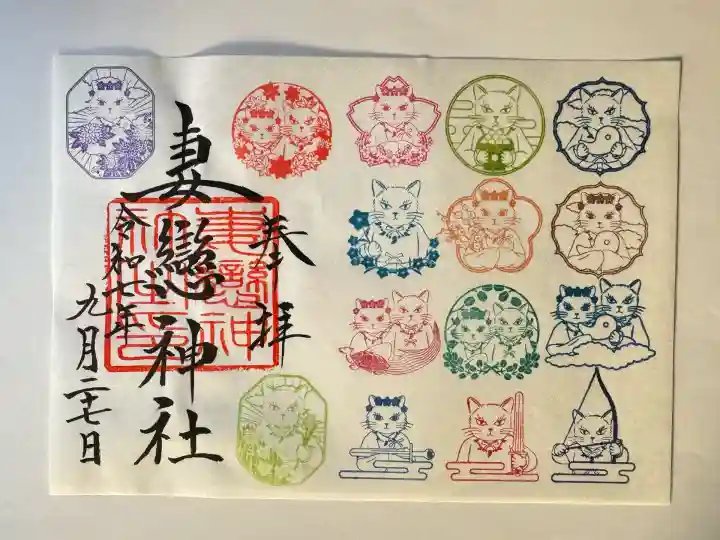 奉拝
妻戀神社
令和七年
九月二十七日